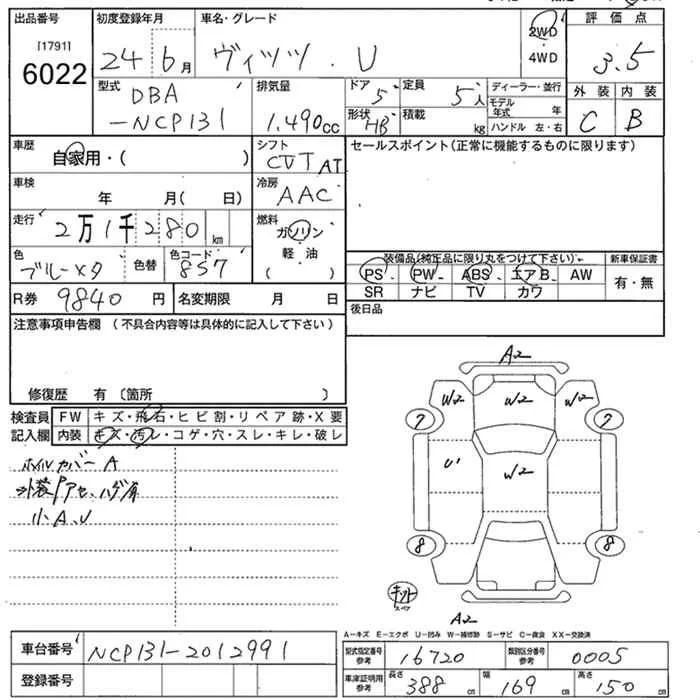 出品番号 初度登録年月 車名・グレード 評価点
[1791]
6022
24 6月 ヴィッツ . U 2WD 4WD 3.5
型式 排気量 ドア 定員 ディーラー・並行 外装 内装
DBA
-NCP131 1.490cc 5 5人 モデル年式 年 C B
形状 HB 積載 kg ハンドル 左・右
車歴 シフト セールスポイント(正常に機能するものに限ります)
自家用・( ) CVT AT
車検 年 月( 日) 冷房 AAC
走行 2万1千280km 燃料 ガソリン
軽・油
( )
色 ブルーメタ 色替 色コード 857
装備品(純正品に限り丸をつけて下さい) 新車保証書
PS PW ABS エアB AW 有・無
SR ナビ TV カワ
R券 9840円 名変期限 月 日 後日品
注意事項申告欄 (不具合内容等は具体的に記入して下さい)
修復歴 有 〔箇所 〕
検査員記入欄 FW キズ・飛石・ヒビ割・リペア跡・X要
内装 キズ・汚レ・コゲ・穴・スレ・キレ・破レ
ホイルカバーA
小A.U
A2
W2 W2 W2
7 7
U' W2
8 8
スペア
A2
A-キズ E-エクボ U-凹み W-補修跡 S-サビ C-腐食 XX-交換済
車台番号 NCP131-2012991
登録番号
型式指定番号 参考 16720 類別区分番号 参考 0005
車庫証明用 参考 長さ 388cm 幅 169cm 高さ 150cm